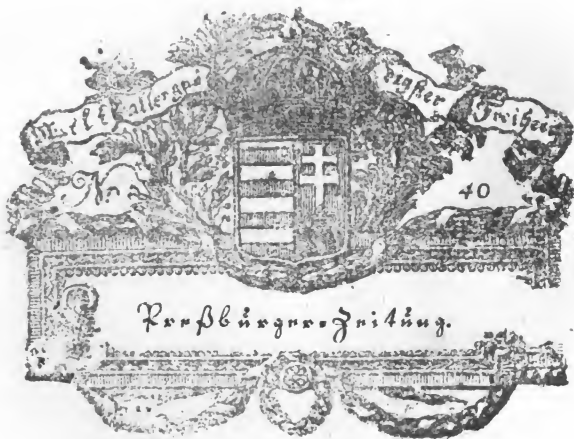 allergnä digster Freiheit
40
Preßburger=Zeitung.